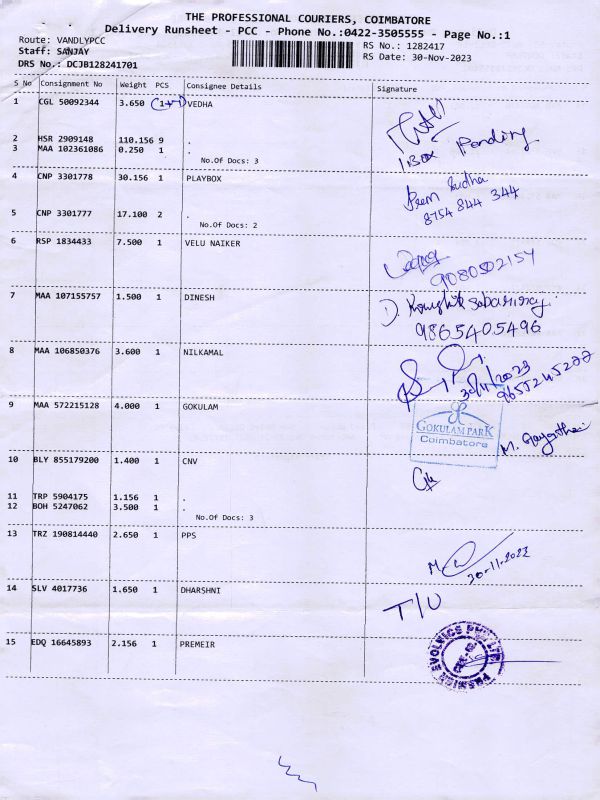 THE PROFESSIONAL COURIERS, COIMBATORE
Delivery Runsheet - PCC - Phone No.:0422-3505555 - Page No.:1
Route: VANDLYPCC
RS No.: 1282417
Staff: SANJAY
RS Date: 30-Nov-2023
DRS No.: DCJB128241701
S No Consignment No Weight PCS Consignee Details Signature
1 CGL 50092344 3.650 (1+1) VEDHA
2 HSR 2909148 110.156 9 .
1 Box Pending
3 MAA 102361086 0.250 1 .
No.Of Docs: 3
4 CNP 3301778 30.156 1 PLAYBOX
Prem Sudha
8754 844 344
5 CNP 3301777 17.100 2 .
No.Of Docs: 2
6 RSP 1834433 7.500 1 VELU NAIKER
9080502154
7 MAA 107155757 1.500 1 DINESH
9865405496
8 MAA 106850376 3.600 1 NILKAMAL
30/11/2023
9655245277
9 MAA 572215128 4.000 1 GOKULAM
GOKULAM PARK
Coimbatore
10 BLY 855179200 1.400 1 CNV
11 TRP 5904175 1.156 1 .
12 BOH 5247062 3.500 1 .
No.Of Docs: 3
13 TRZ 190814440 2.650 1 PPS
30-11-2022
14 SLV 4017736 1.650 1 DHARSHNI
T/U
15 EDQ 16645893 2.156 1 PREMEIR